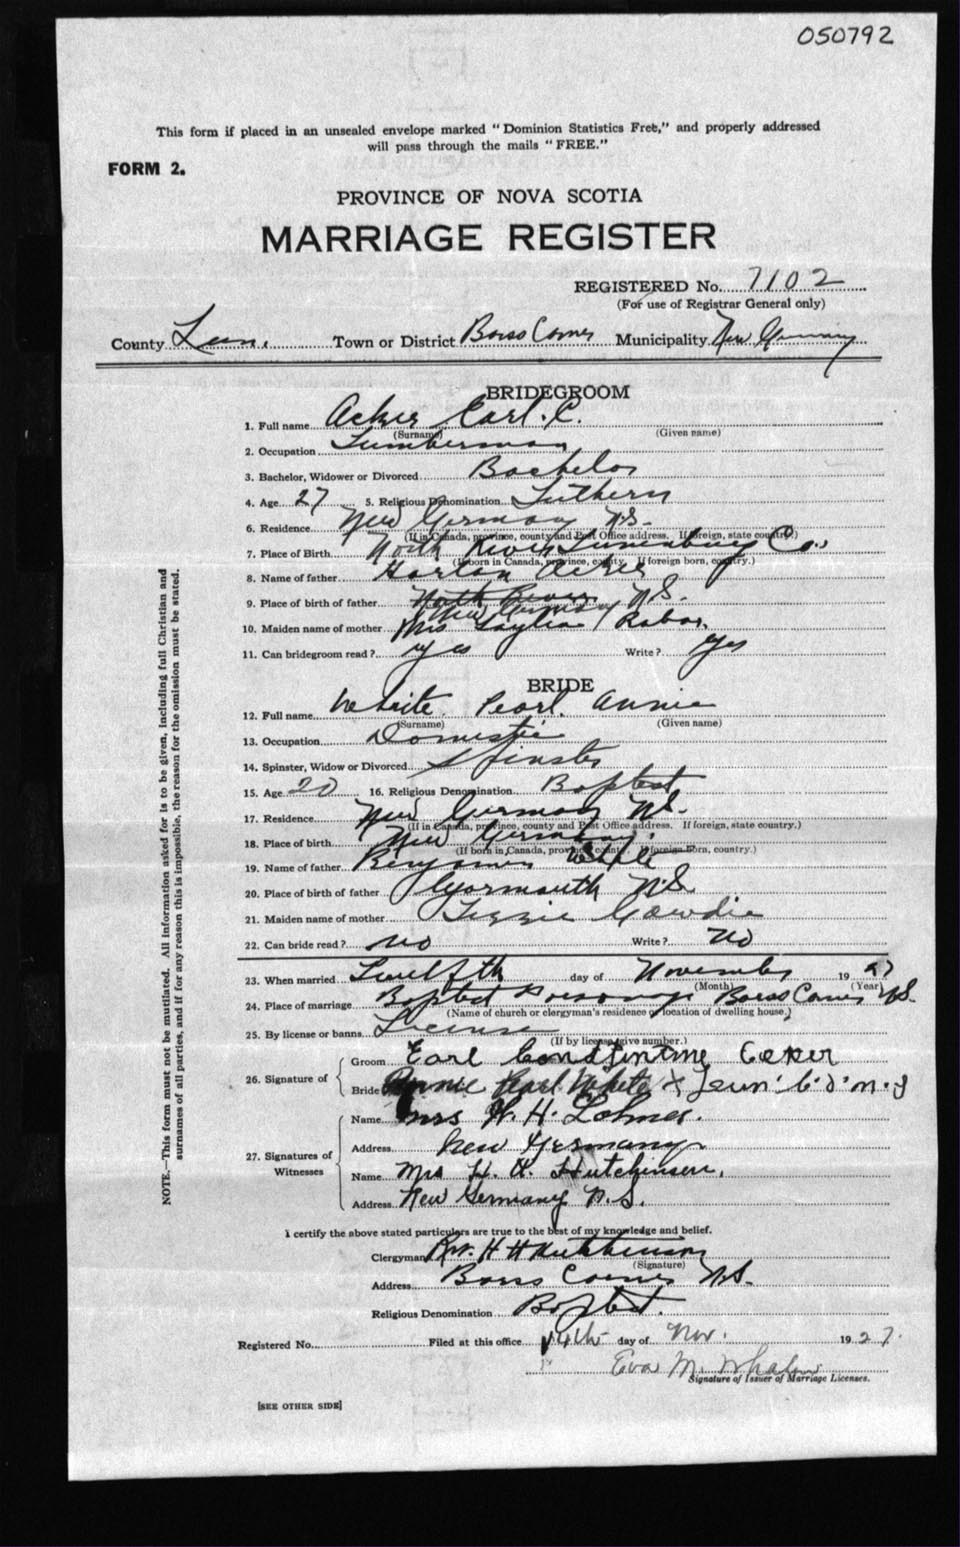 050792
This form if placed in an unsealed envelope marked "Dominion Statistics Free," and properly addressed
will pass through the mails "FREE."
FORM 2.
PROVINCE OF NOVA SCOTIA
MARRIAGE REGISTER
REGISTERED No. 7102
(For use of Registrar General only)
County Lun. Town or District Barss Corner Municipality New Germany
BRIDEGROOM
1. Full name Acker Earl. C.
(Surname) (Given name)
2. Occupation Lumberman
3. Bachelor, Widower or Divorced Bachelor
4. Age 27 5. Religious Denomination Luthern
6. Residence New Germany N.S.
(If in Canada, province, county and Post Office address. If foreign, state country.)
7. Place of Birth North River Lunenburg Co.
(If born in Canada, province, county. If foreign born, country.)
8. Name of father Harlan Acker
9. Place of birth of father North River N.S.
New Germany
10. Maiden name of mother Mrs
11. Can bridegroom read? yes Write? yes
BRIDE
12. Full name White Pearl. Annie
(Surname) (Given name)
13. Occupation Domestic
14. Spinster, Widow or Divorced Spinster
15. Age 20 16. Religious Denomination Baptist
17. Residence New Germany N.S.
(If in Canada, province, county and Post Office address. If foreign, state country.)
18. Place of birth New Germany
(If born in Canada, province county. If foreign born, country.)
19. Name of father Benjamen White
20. Place of birth of father Yarmouth N.S.
21. Maiden name of mother Lizzie Gowdie
22. Can bride read? No Write? No
23. When married Twelfth day of November 19 27
(Month) (Year)
24. Place of marriage Baptist Parsonage Barss Corner N.S.
(Name of church or clergyman's residence or location of dwelling house.)
25. By license or banns License
(If by license, give number.)
26. Signature of
Groom Earl Constintine Ecker
Bride Annie Pearl White X
27. Signatures of Witnesses
Name Mrs W. H. Lohnes.
Address New Germany
Name Mrs H. H. Hutchinson.
Address New Germany N.S.
I certify the above stated particulars are true to the best of my knowledge and belief.
Clergyman Rev. H H Hutchinson
(Signature)
Address Barss Corner N.S.
Religious Denomination Baptist.
Registered No. Filed at this office 14th day of Nov. 1927.
Eva M. Whalen
Signature of Issuer of Marriage Licenses.
[SEE OTHER SIDE]
NOTE.—This form must not be mutilated. All information asked for is to be given, including full Christian and
surnames of all parties, and if for any reason this is impossible, the reason for the omission must be stated.